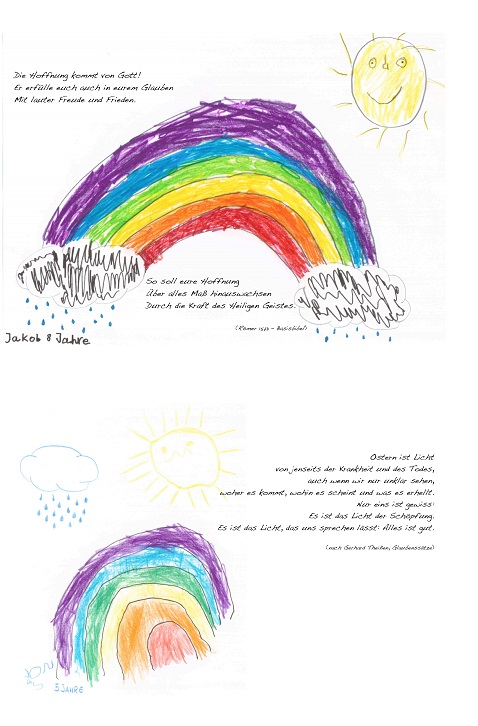 Die Hoffnung kommt von Gott!
Er erfülle euch auch in eurem Glauben
Mit lauter Freude und Frieden.
So soll eure Hoffnung
Über alles Maß hinauswachsen
Durch die Kraft des Heiligen Geistes.
(Römer 15,13 – Basisbibel)
Jakob 8 Jahre
Ostern ist Licht
von jenseits der Krankheit und des Todes,
auch wenn wir nur unklar sehen,
woher es kommt, wohin es scheint und was es erhellt.
Nur eins ist gewiss:
Es ist das Licht der Schöpfung.
Es ist das Licht, das uns sprechen lässt: Alles ist gut.
(nach Gerhard Theißen, Glaubenssätze)
5 JAHRE